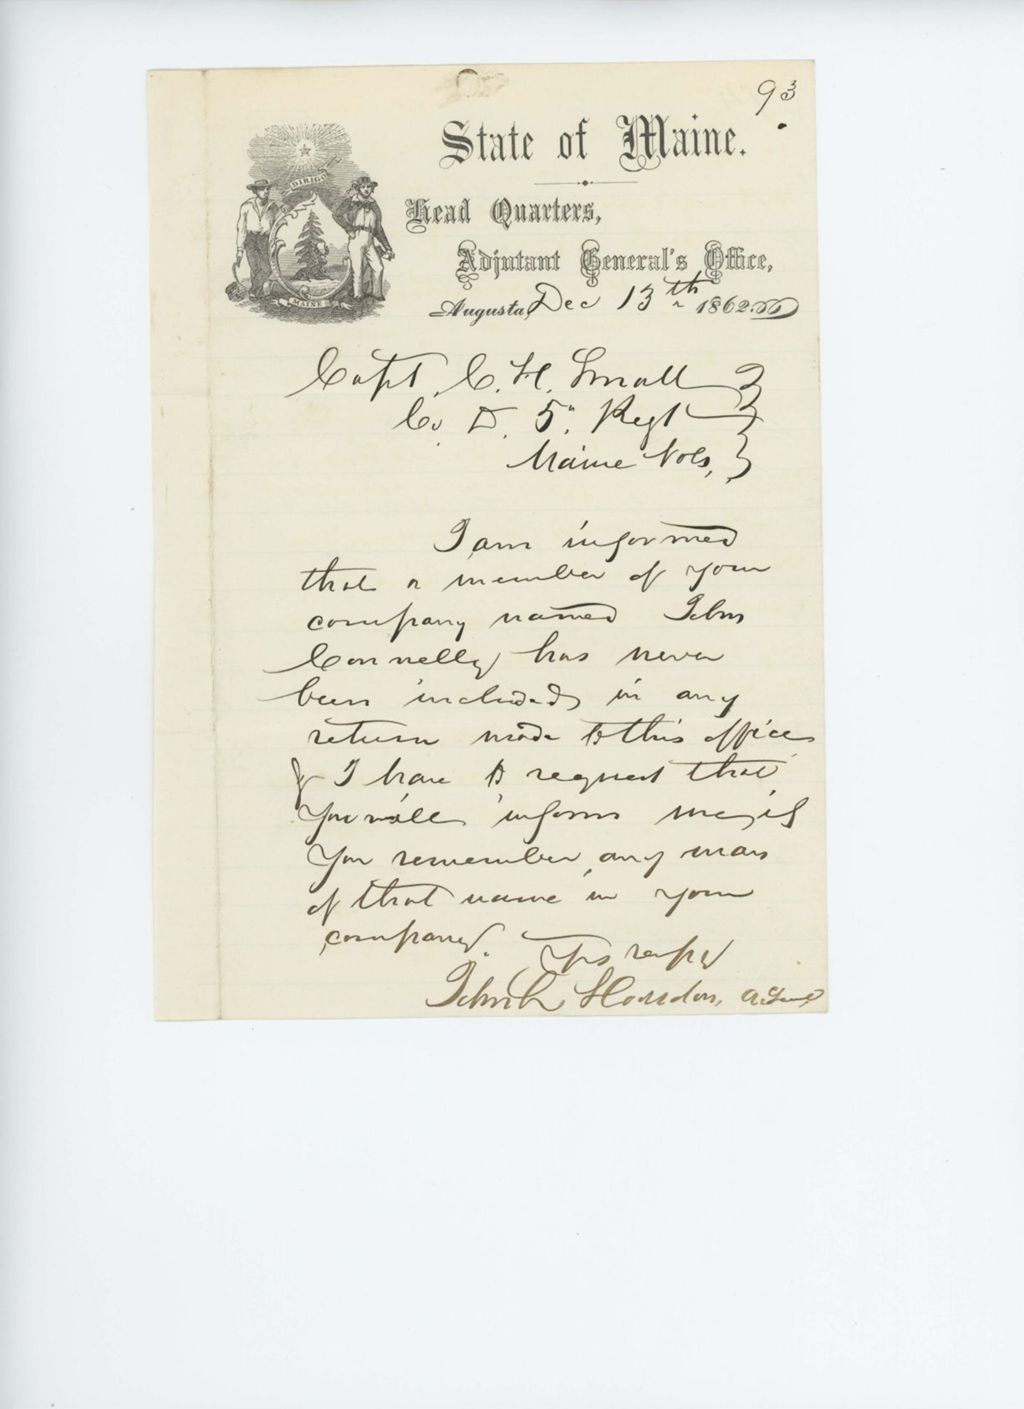 93
State of Maine.
DIRIGO
Head Quarters,
Adjutant General's Office,
MAINE
Augusta, Dec 13th 1862
Capt. C. H. Small
Co. D. 5" Regt
Maine Vols,
I am informed
that a member of your
company named John
Connelly has never
been included in any
return made to this office
& I have to request that
you will inform me, if
you remember any man
of that name in your
company.
Yrs respy
John L Hodsdon,